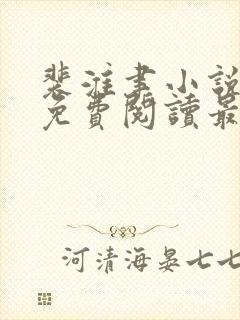 裴淮書小說
免費閱讀最
河清海晏七七